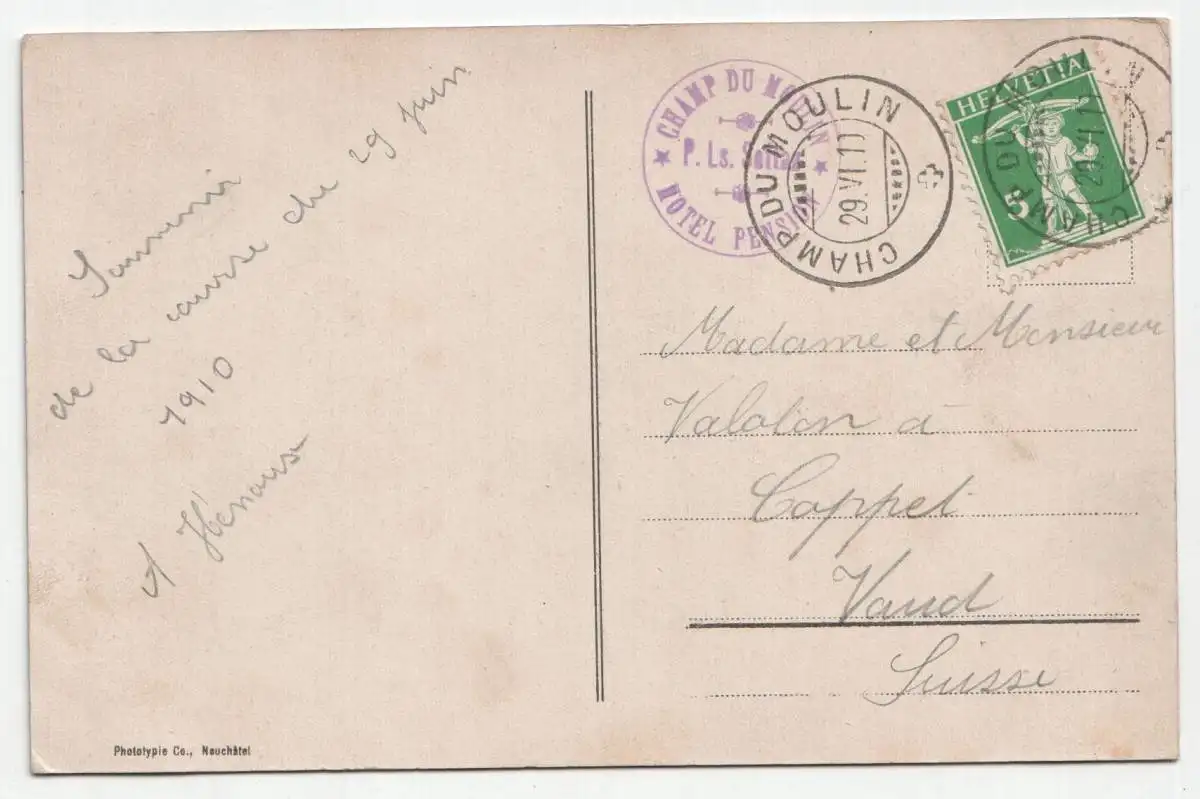 Souvenir
de la course du 29 juin
1910
A
CHAMP DU MOULIN
P. Ls.
HOTEL PENSION
CHAMP DU MOULIN
29.VI.1
HELVETIA
5
CHAMP DU
29.VI.1
Madame et Monsieur
Valoton à
Coppet
Vaud
Suisse
Phototypie Co., Neuchâtel